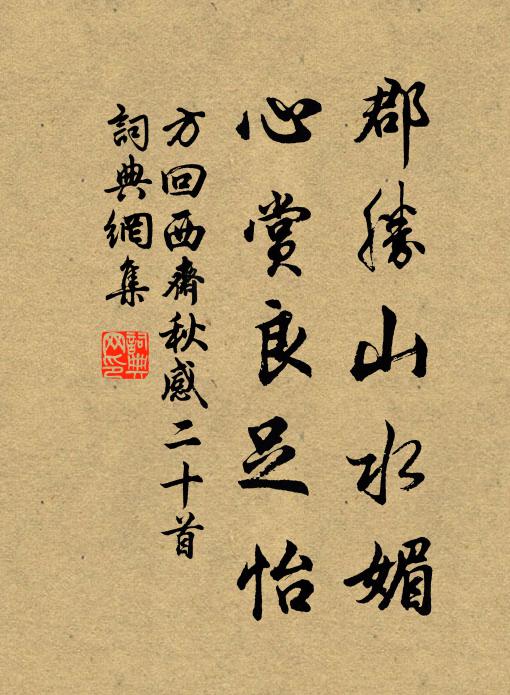 郡勝山水媚
心賞良足怡
方回西齋秋感二十首
詞典網集
詞典網印